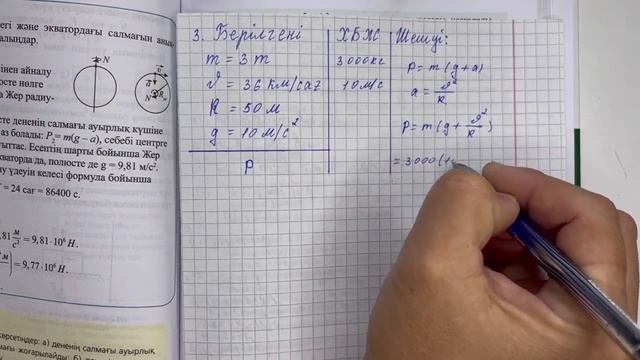 егі және экватордағы салмағын анық-
алыңдар.
інен айналу
юсте нөлге
а Жер радиу-
N
сте дененің салмағы ауырлық күшіне
аз болады: P₂= m(g – a), себебі центрге
ғыттас. Есептің шарты бойынша Жер
кваторда да, полюсте де g = 9,81 м/с².
ну үдеуін келесі формула бойынша
= 24 сағ = 86400 с.
81 м/с² = 9,81·10⁶ Н.
= 9,77·10⁶ Н.
көрсетіңдер: а) дененің салмағы ауырлық
3. Берілгені
m = 3 т
υ = 36 км/сағ
R = 50 м
g = 10 м/с²
P
ХБЖ
3000кг
10 м/с
Шешуі:
P = m (g + a)
a = υ²/R
P = m (g + υ²/R)
= 3000 (1